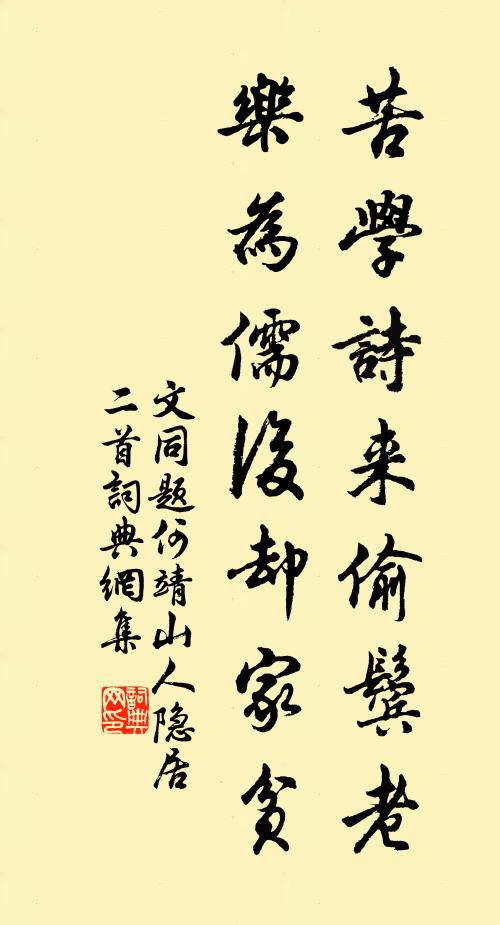 苦學詩来偷鬢老
樂為儒後却家貧
文同題何靖山人隐居
二首詞典網集
詞典
网印